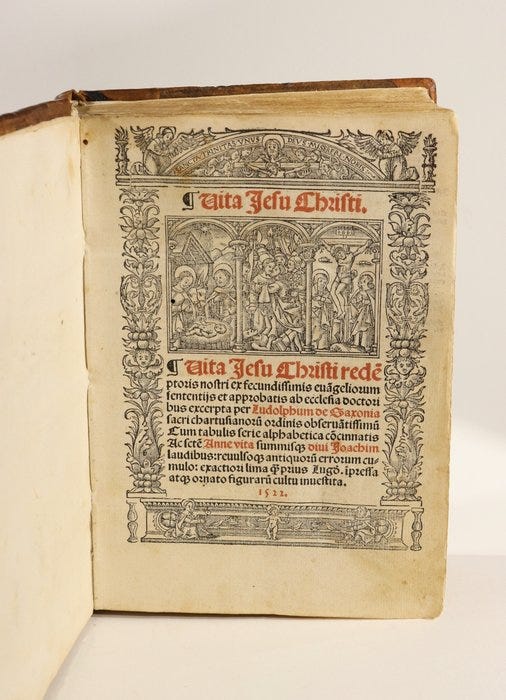 SANCTA TRINITAS VNVS DEVS MISERERE NOBIS
¶ Uita Jesu Christi.
¶ Uita Jesu Christi redē
ptoris nostri ex fecundissimis euāgeliorum
sententijs et approbatis ab ecclesia doctori
bus excerpta per Ludolphum de Saxonia
sacri chartusianorū ordinis obseruātissimū
Cum tabulis serie alphabetica cōcinnatis
Ac seté̄ Anne vita summisq; diui Joachim
laudibus: reuulsoq; antiquorū errorum cu-
mulo: exactiori lima q̄ prius Lugd̄. īpressa
atq; ornato figurarū cultu inuestita.
1522.